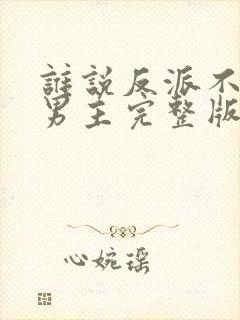 誰說反派不
男主完整版
心婉瑤